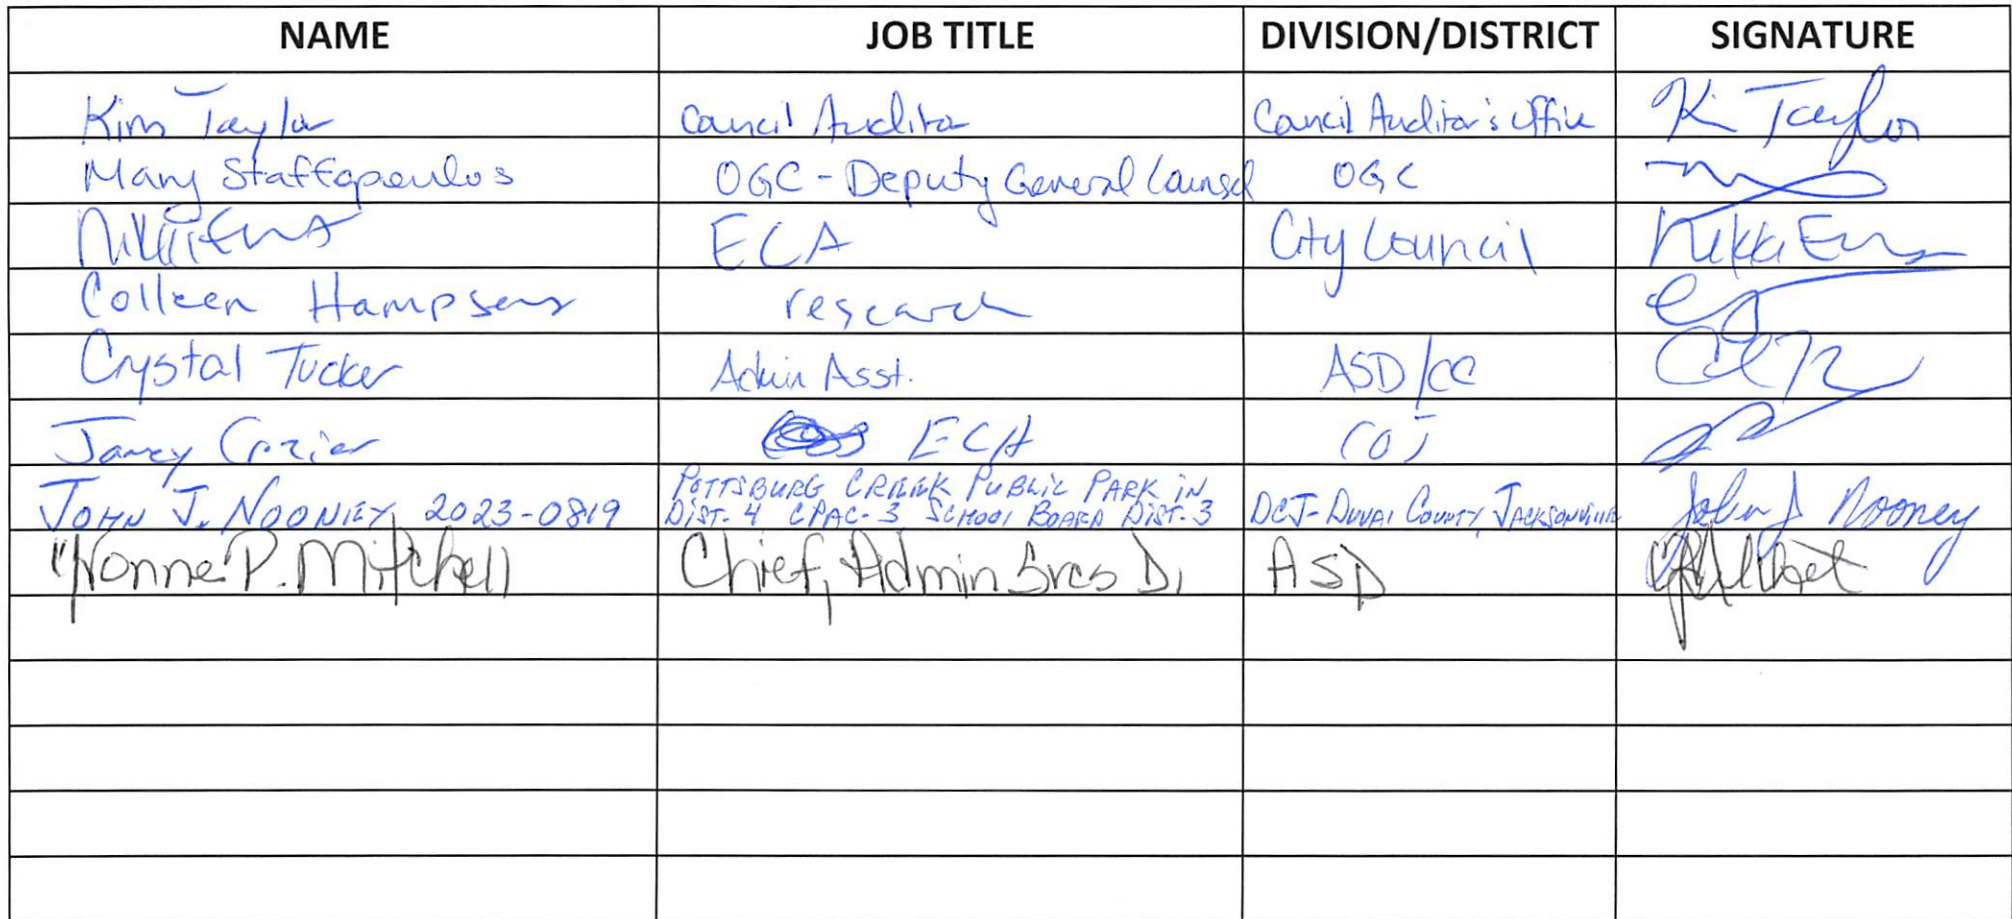 NAME JOB TITLE DIVISION/DISTRICT SIGNATURE
Kim Taylor Council Auditor Council Auditor's Office K Taylor
Mary Staffopoulos OGC - Deputy General Counsel OGC
Nikki Evans ECA City Council Nikki Evans
Colleen Hampsey research
Crystal Tucker Admin Asst. ASD/CC
Jancy Crozier ECA COJ
POTTSBURG CREEK PUBLIC PARK IN
JOHN J. NOONEY, 2023-0819 DIST. 4 CPAC-3 SCHOOL BOARD DIST. 3 DCJ-DUVAL COUNTY, JACKSONVILLE John J Nooney
Yvonne P. Mitchell Chief, Admin Srvcs D. ASD